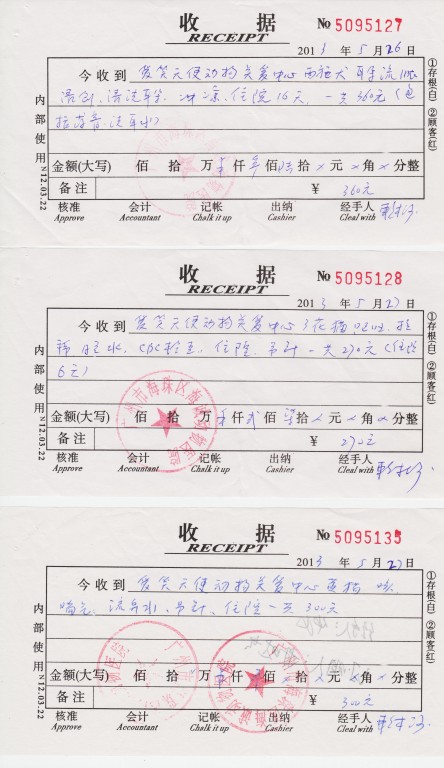 收 据 № 5095127
RECEIPT
2013 年 5 月 26 日
今收到 爱笑天使动物关爱中心西施犬 耳朵流脓
清创、清洁耳朵、冲凉、住院 16天、一共360元(包
金额(大写) 佰 拾 万 仟 佰 陆拾 × 元 × 角 × 分整
备 注 ¥ 360元
核准 会计 记帐 出纳 经手人
Approve Accountant Chalk it up Cashier Cleal with
内部使用
N12.03.22
①存根(白) ②顾客(红)
收 据 № 5095128
RECEIPT
2013 年 5 月 27 日
今收到 爱笑天使动物关爱中心
CBC检查、住院、吊针 一共270元(住院
6天)
金额(大写) 佰 拾 万 仟 贰 佰 拾 × 元 × 角 × 分整
备 注 ¥ 270元
核准 会计 记帐 出纳 经手人
Approve Accountant Chalk it up Cashier Cleal with
内部使用
N12.03.22
①存根(白) ②顾客(红)
收 据 № 5095135
RECEIPT
2013 年 5 月 27 日
今收到 爱笑天使动物关爱中心 猫 咳、
喘气、流鼻水、吊针、住院一共300元
金额(大写) 佰 拾 万 仟 佰 拾 元 角 分整
备 注 ¥ 300元
核准 会计 记帐 出纳 经手人
Approve Accountant Chalk it up Cashier Cleal with
内部使用
N12.03.22
①存根(白) ②顾客(红)